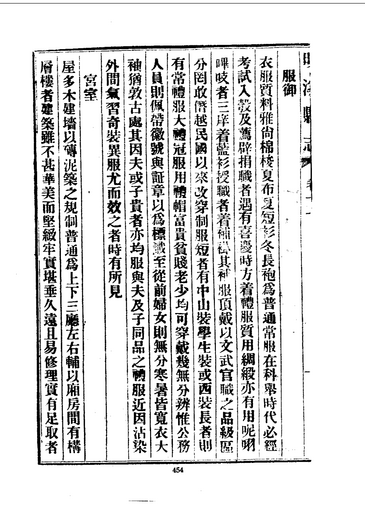 服御
衣服質料雅尚棉棱夏布夏短衫冬長袍為普通常服在科舉時代必經
考試入彀及薦辟捐職者遇有喜慶時方着禮服質用綢緞亦有用呢
嗶吱者三庠着藍衫授職者着補褂其補服頂戴以文武官職之品級區
分罔敢僭越民國以來改穿制服短者有中山裝學生裝或西裝長者則
有常禮服大禮冠服用禮帽富貴貧賤老少均可穿戴幾無分辨惟公務
人員則佩帶徽號與証章以為標識至從前婦女則無分寒暑皆寬衣大
袖猶敦古處其因夫或子貴者亦均服與夫及子同品之禮服近因沾染
外間氣習奇裝異服尤而效之者時有所見
宮室
屋多木建墻以磚泥築之規制普通為上下三廳左右輔以廂房間有構
層樓者建築雖不甚華美而堅緻牢實堪垂久遠且易修理實有足取者
454